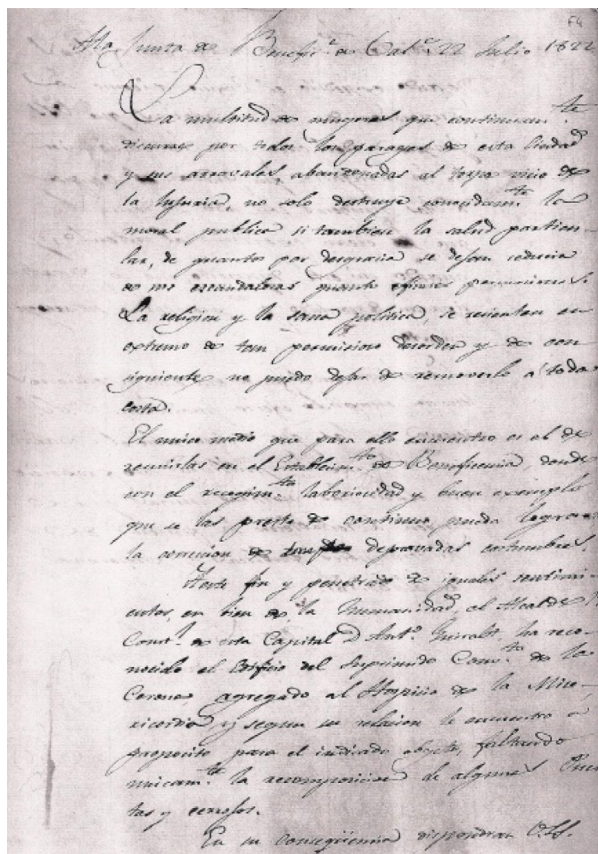 F4
A la Junta de Benefi.ª de Cat.ª 22 Julio 1822
La multitud de mugeres que continuam.te
discurren por todos los parages de esta Ciudad
y sus arravales abandonadas al torpe vicio de
la lujuria, no solo destruye conocidam.te la
moral publica si tambien la salud particu-
lar, de quantos por desgracia se dejan seducir
de sus escandalosas quanto persuasiones.
La religion y la sana politica, se resienten en
extremo de tan pernicioso desorden y de con
siguiente no puedo dejar de removerlo a toda
costa.
El unico medio que para ello encuentro es el de
reunirlas en el Establecim.to de Beneficencia, donde
con el recogim.to laboriosidad y buen exemplo
que se las preste de continuo, pueda lograrse
la correccion de depravadas costumbres.
A este fin y penetrado de iguales sentimi-
entos, en bien de la humanidad, el Alcalde 1º
Const.l de esta Capital D. Ant.º ha reco-
nocido el Edificio del Suprimido Conv.to de la
Corona, agregado al Hospicio de la Mise-
ricordia y segun su relacion le encuentro a
proposito para el indicado objeto, faltando
unicam.te la recomposicion de algunas Puer
tas y cerrojos.
En su conseqüencia dispondran V.SS.